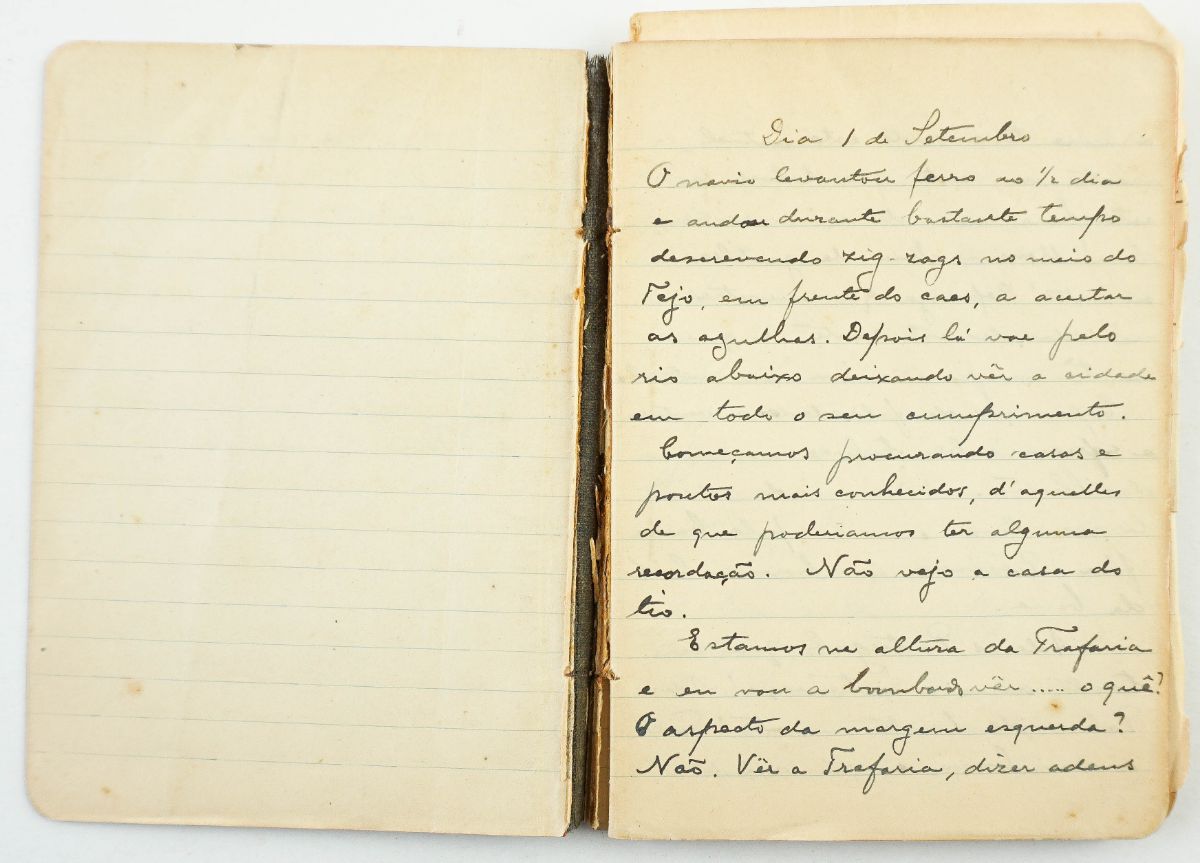 Dia 1 de Setembro
O navio levantou ferro ao 1/2 dia
e andou durante bastante tempo
descrevendo zig-zags no meio do
Tejo, em frente do caes, a acertar
as agulhas. Depois lá vae pelo
rio abaixo deixando vêr a cidade
em todo o seu cumprimento.
Começamos procurando casas e
pontos mais conhecidos, d'aquelles
de que poderiamos ter alguma
recordação. Não vejo a casa do
tio.
Estamos na altura da Trafaria
e eu vou a bombordo vêr ..... o quê?
O aspecto da margem esquerda?
Não. Vêr a Trafaria, dizer adeus